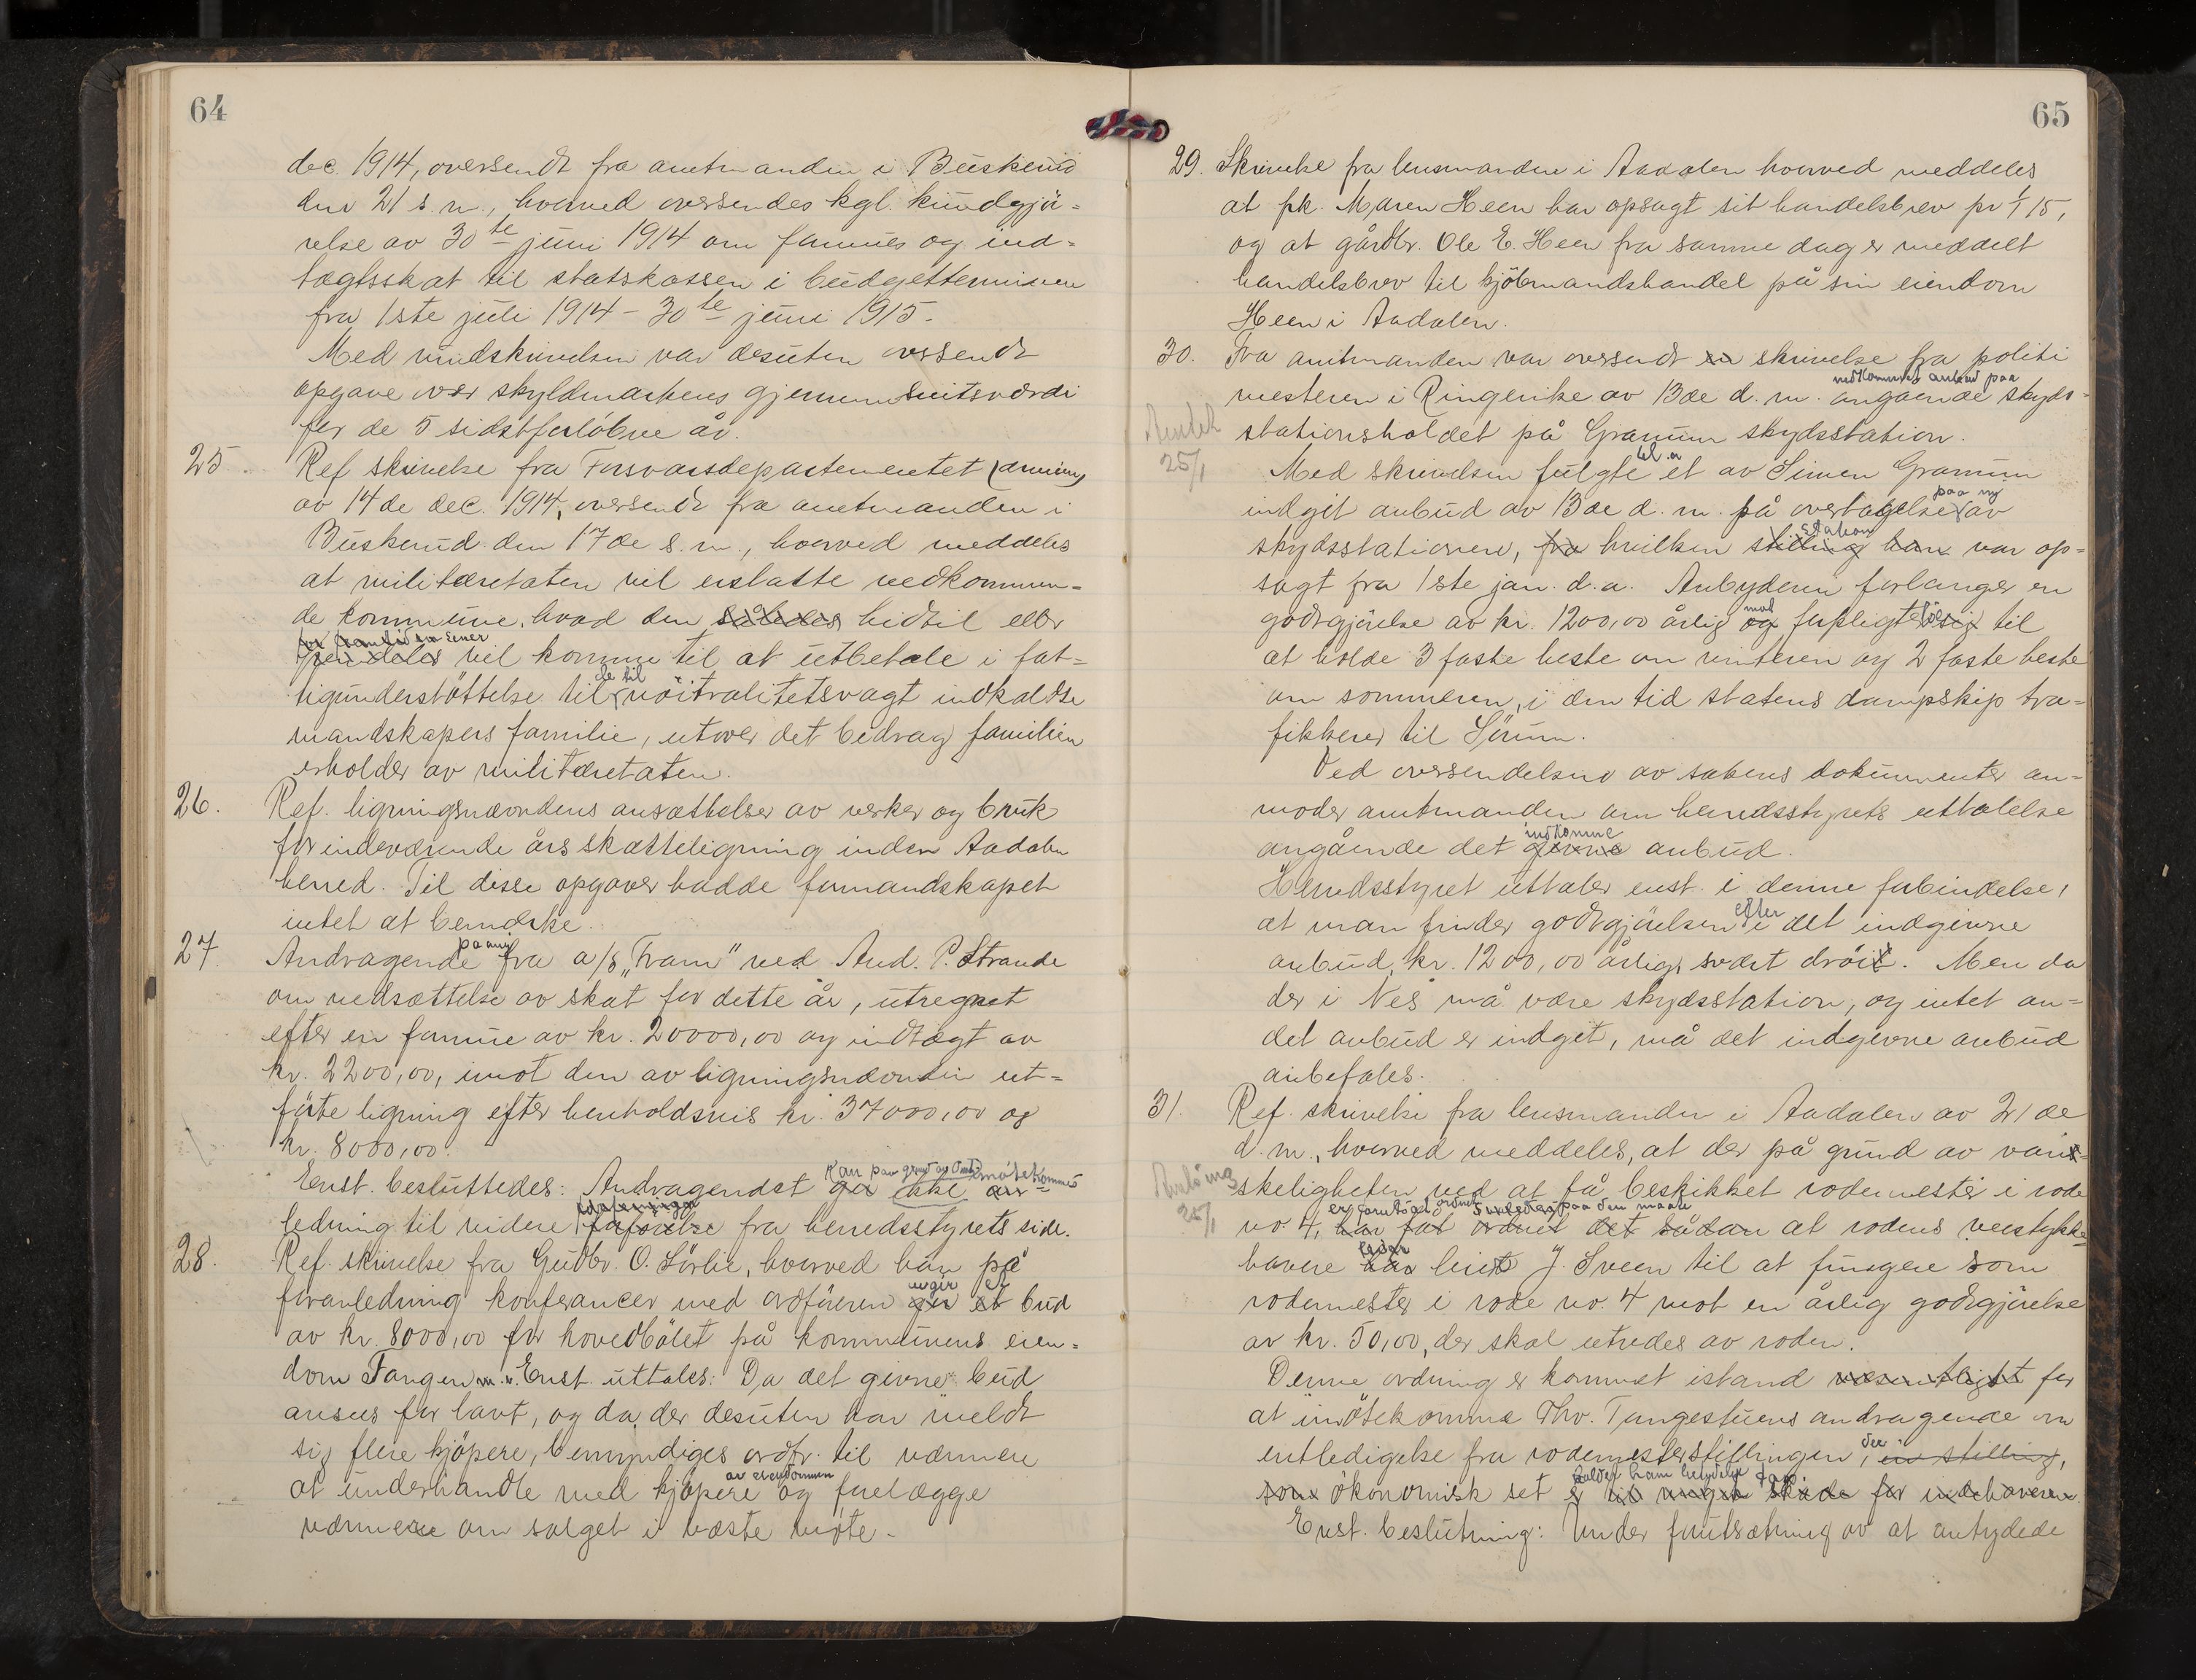 64
dec. 1914, oversendt fra amtmanden i Buskerud
den 21 s. m., hvorved oversendes kgl. kundgjö-
relse av 30te juni 1914 om formues og ind-
tægtsskat til statskassen i budgetterminen
fra 1ste juli 1914 - 30te juni 1915.
Med rundskrivelsen var desuten oversendt
opgave over skyldmarkens gjennemsnitsværdi
for de 5 sidstforløbne år.
25. Ref. skrivelse fra Forsvarsdepartementet (armeen)
av 14de dec. 1914, oversendt fra amtmanden i
Buskerud den 17de s. m., hvorved meddeles
at militæretaten vil erstatte vedkommen-
de kommune, hvad den således hidtil eller
for fremtid senere
fremdeles vil komme til at utbetale i fat-
de til
tigunderstöttelse til nöitralitetsvagt indkaldte
mandskapers familie, utover det bidrag familien
erholder av militæretaten.
26. Ref. ligningsnævndens ansættelser av verker og bruk
for indeværende års skatteligning inden Aadalen
herred. Til disse opgaver hadde formandskapet
intet at bemerke.
paany
27. Andragende fra a/s „Fram" ved And. P. Strande
om nedsættelse av skat for dette år, utregnet
efter en formue av kr. 20000,00 og indtægt av
kr. 2200,00, imot den av ligningsnævnden ut-
förte ligning efter henholdsvis kr. 37000,00 og
kr. 8000,00.
kan paa grund av imötekommes
Enst. besluttedes: Andragendet gir ikke an-
ledning til videre forføielse fra herredsstyrets side.
28. Ref. skrivelse fra Gudbr. O. Sörlie, hvorved han på
foranledning konferancer med ordföreren gir et bud
av kr. 8000,00 for hovedbölet på kommunens eien-
dom Tangen m. v. Enst. uttales: Da det givne bud
ansees for lavt, og da der desuten har meldt
sig flere kjöpere, bemyndiges ordfr. til nærmere
av eiendommen
at underhandle med kjöpere og forelægge
nærmere om salget i næste möte.
65
29. Skrivelse fra lensmanden i Aadalen hvorved meddeles
at frk. Maren Heen har opsagt sit handelsbrev pr 1/1 15,
og at gårdbr. Ole E. Heen fra samme dag er meddelt
handelsbrev til kjöbmandshandel på sin eiendom
Heen i Aadalen.
30. Fra amtmanden var oversendt en skrivelse fra politi
vedkommende anbud paa
mesteren i Ringerike av 13de d. m. angaaende skyds-
stationsholdet på Granum skydsstation.
25/1
Med skrivelsen fulgte et av Simen Granum
paa ny
indgit anbud av 13de d. m. på overtagelse av
station
skydsstationen, fra hvilken stilling han var op-
sagt fra 1ste jan. d. a. Anbyderen forlanger en
mot
godtgjörelse av kr. 1200,00 årlig og forpligter sig til
at holde 3 faste heste om vinteren og 2 faste heste
om sommeren, i den tid statens dampskip tra-
fikkerer til Sörum.
Ved oversendelsen av sakens dokumenter an-
moder amtmanden om herredsstyrets uttalelse
indkomne
angående det givne anbud.
Herredsstyret uttaler enst. i denne forbindelse,
efter
at man finder godtgjörelsen i det indgivne
anbud, kr. 1200,00 årlig, svært dröit. Men da
der i Nes må være skydsstation, og intet an-
det anbud er indgit, må det indgivne anbud
anbefales.
31. Ref. skrivelse fra lensmanden i Aadalen av 21de
d. m., hvorved meddeles, at der på grund av van-
skeligheten ved at få beskikket rodemester i rode
25/1
er forutsat ordnet saaledes paa den maate
no. 4, har fat ordnet det sådan at rodens veistykke-
havere har leiet J. Sveen til at fungere som
rodemester i rode no. 4 mot en årlig godtgjörelse
av kr. 50,00, der skal utredes av roden.
Denne ordning er kommet istand væsentligst for
at imötekomme Thv. Tangestuens andragende om
der
entledigelse fra rodemesterstillingen, en stilling,
volder ham betydelige tap
som ökonomisk set er til megen skade for indehaveren.
Enst. beslutning: Under forutsætning av at antydede